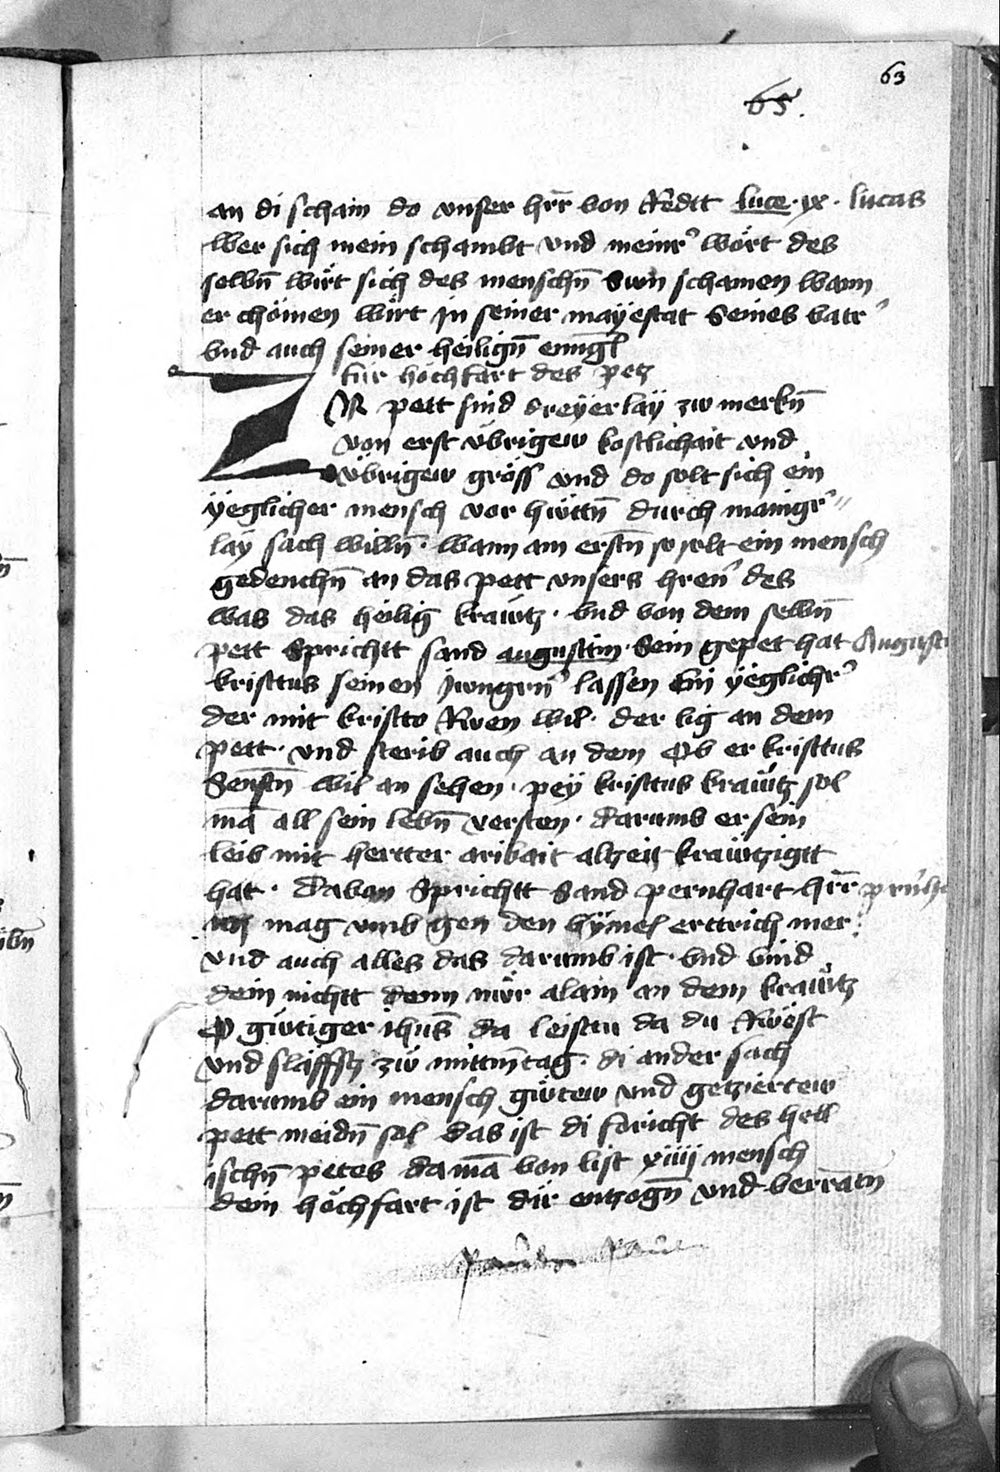 63
65.
an di scham do vnser hr̄r von Redtt luce · ix · lucas
wer sich mein schambt vnd meinr' wört des
selbn̄ wirt sich des menschn̄ Sun schamen wann
er chömen wirt jn seiner mayestat Seines vatr'
vnd auch seiner heilign̄ enngl
für hochfart des petz
ZW pett sind dreyerlay zw merkn̄
von erst übrigew kostlichait vnd
übrigew gröss vnd do solt sich ein
yeglicher mensch vor hüttn̄ durch manigr'=
lay sach willn̄ · wann am erstn̄ so solt ein mensch
gedenchn̄ an das pett vnsers hren' des
was das heilig krawtz · vnd von dem selbn̄
pett Sprichtt sand augusttin · Sein gepet hat Augusti
kristtus seinen jungrn̄' lassen Ein yeglichr'
der mit kristto Ruen wil · der lig an dem
pett · vnd sterib auch an dem Ob er kristtus
Senftn̄ wil an sehen · pey kristtus krawtz sol
mā all sein lebn̄ versten · darumb er sein
leib mit hertter aribait alzeit krawtzigtt
hat · Davon Sprichtt Sand pernhart hr̄r
ich mag vmb gen den hymel erttrich mer
vnd auch alles das darumb ist · vnd vind
dein nichtt denn nür alain an dem krawtz
O gütiger ihus̄ da leistu da du Rwest
vnd släffst zw mittn̄tag · di ander sach
darumb ein mensch gütew vnd getziertew
pett meidn̄ sol das ist di foricht des hell
ischn̄ petes da mā von list xiiij mensch
dein höchfart ist dir entzogn̄ vnd verratn̄